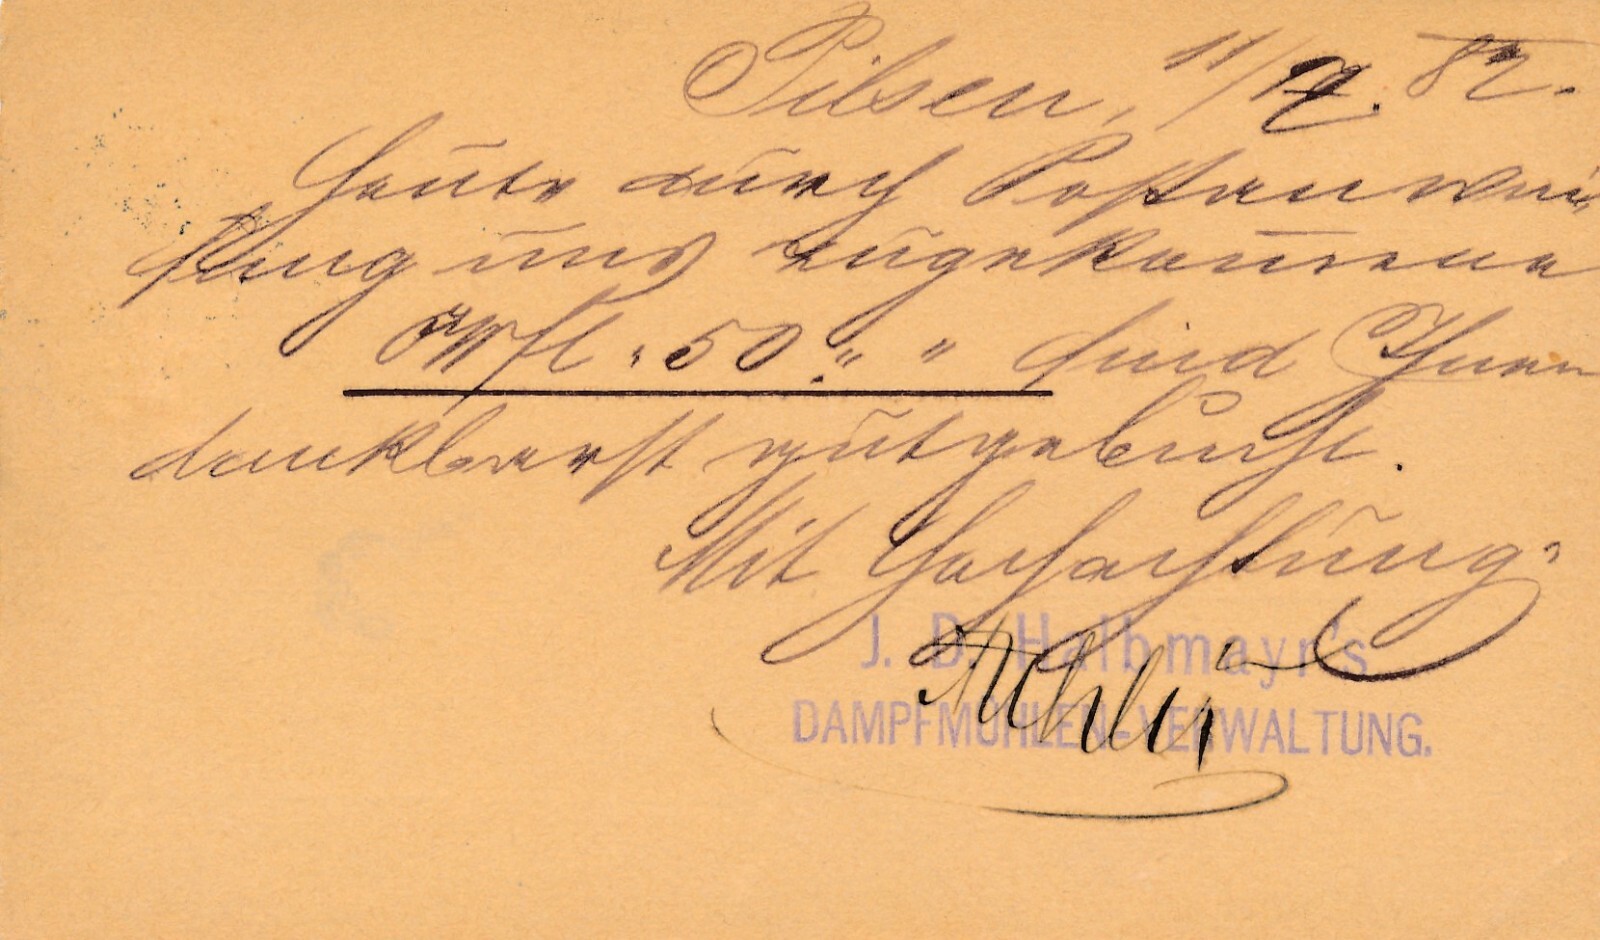 Pilsen, 11/2. 82.
Heute durch Postanwei-
sung uns zugekommene
ÖWfl. 50. " " sind Ihnen
dankbarst gutgebucht.
Mit Hochachtung
J. D. Halbmayr's
DAMPFMÜHLEN-VERWALTUNG.